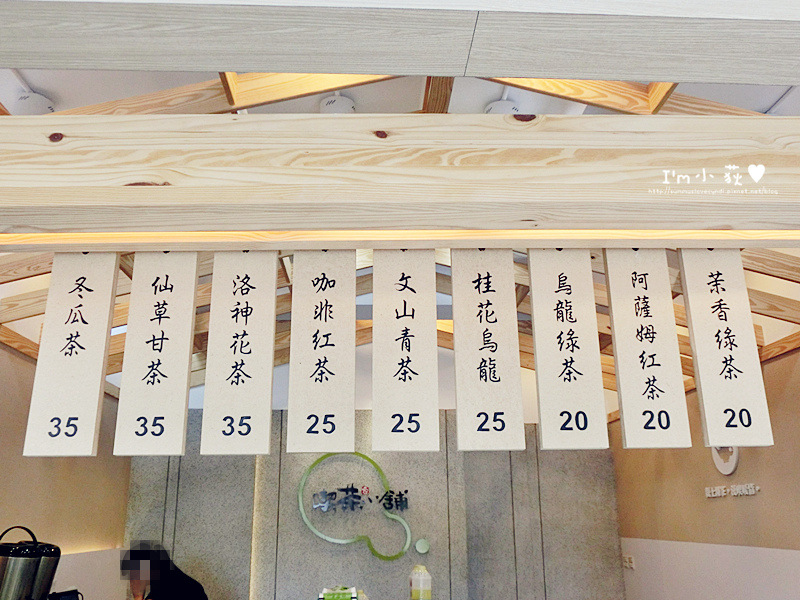 I'm小荻♥
冬瓜茶
35
仙草甘茶
35
洛神花茶
35
咖啡紅茶
25
文山青茶
25
桂花烏龍
25
烏龍綠茶
20
阿薩姆紅茶
20
茉香綠茶
20
喫茶小舖